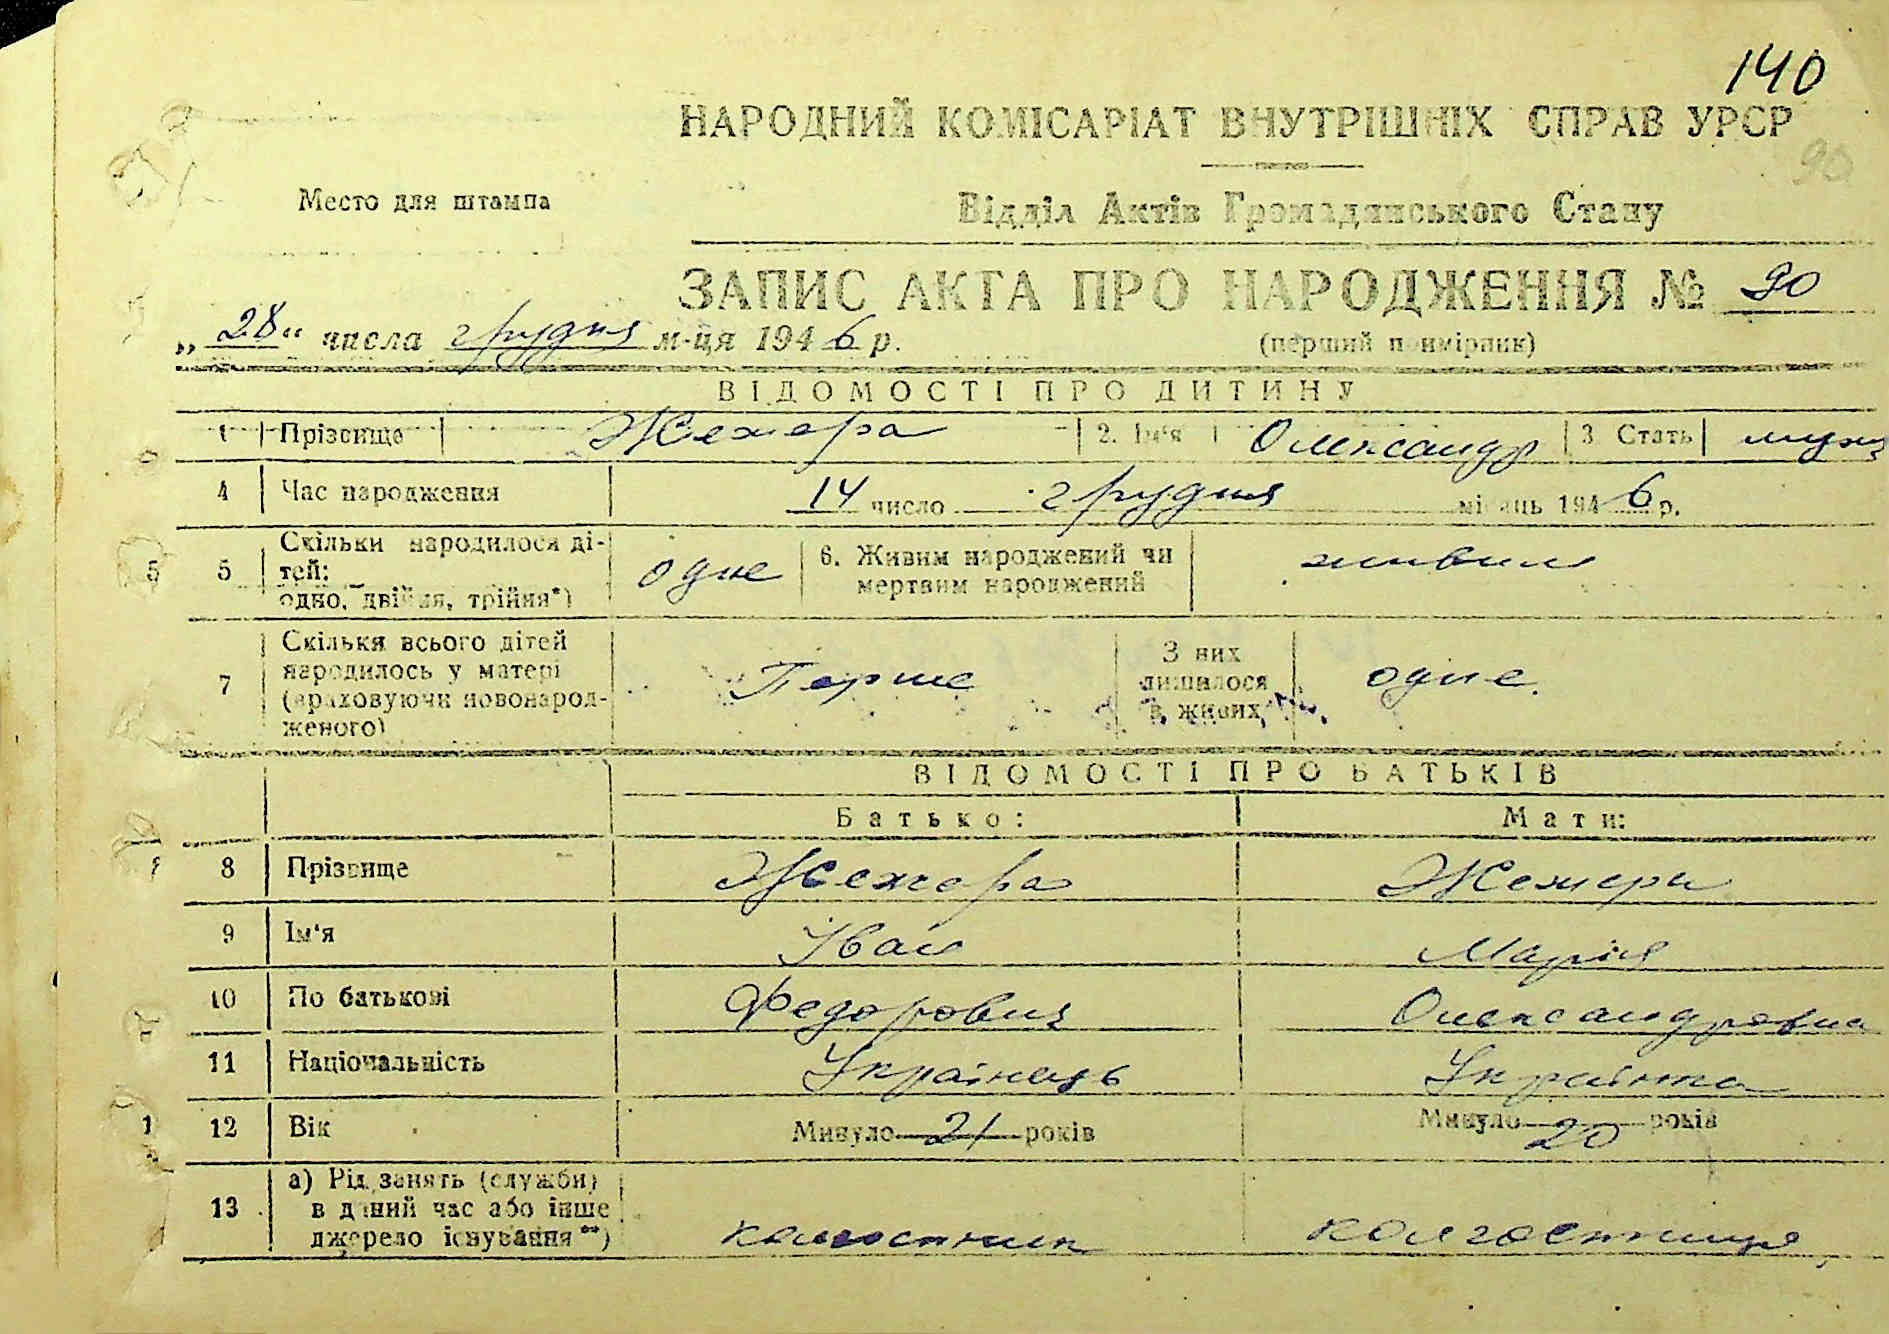 140
НАРОДНИЙ КОМІСАРІАТ ВНУТРІШНІХ СПРАВ УРСР
90
Место для штампа
Відділ Актів Громадянського Стану
ЗАПИС АКТА ПРО НАРОДЖЕННЯ № 90
„28" числа грудня м-ця 1946 р.
(перший примірник)
ВІДОМОСТІ ПРО ДИТИНУ
1 Прізвище Жежера 2. Ім'я Олександр 3. Стать муж
4 Час народження 14 число грудня місяць 1946 р.
5 Скільки народилося ді-
тей:
одно, двійня, трійня*) одне 6. Живим народжений чи
мертвим народжений живим
7 Скільки всього дітей
народилось у матері
(враховуючи новонарод-
женого) Перше З них
лишилося
в живих одне.
ВІДОМОСТІ ПРО БАТЬКІВ
Батько: Мати:
8 Прізвище Жежера Жежера
9 Ім'я Іван Марія
10 По батькові Федорович Олександровна
11 Національність Українець Українка
12 Вік Минуло 21 років Минуло 20 років
13 а) Рід занять (служби)
в даний час або інше
джерело існування**) колгоспник колгоспниця